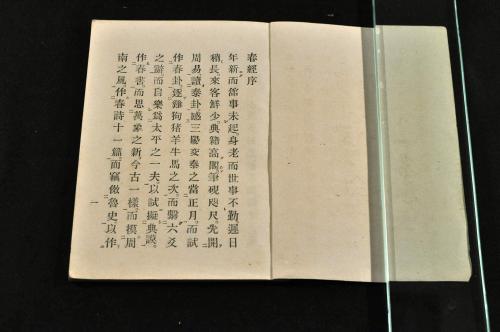 春經序
年新而舘事未起身老而世事不勤遲日
稍長來客鮮少典籍高閣筆硯咫尺先開
周易讀泰卦感三陽交泰之當正月而試
作春卦逐雞狗猪羊牛馬之次而繫六爻
之辭而自樂爲太平之一夫以試擬典謨
作春書而思萬象之新今古一樣而模周
南之風作春詩十一篇而竊傚魯史以作
一